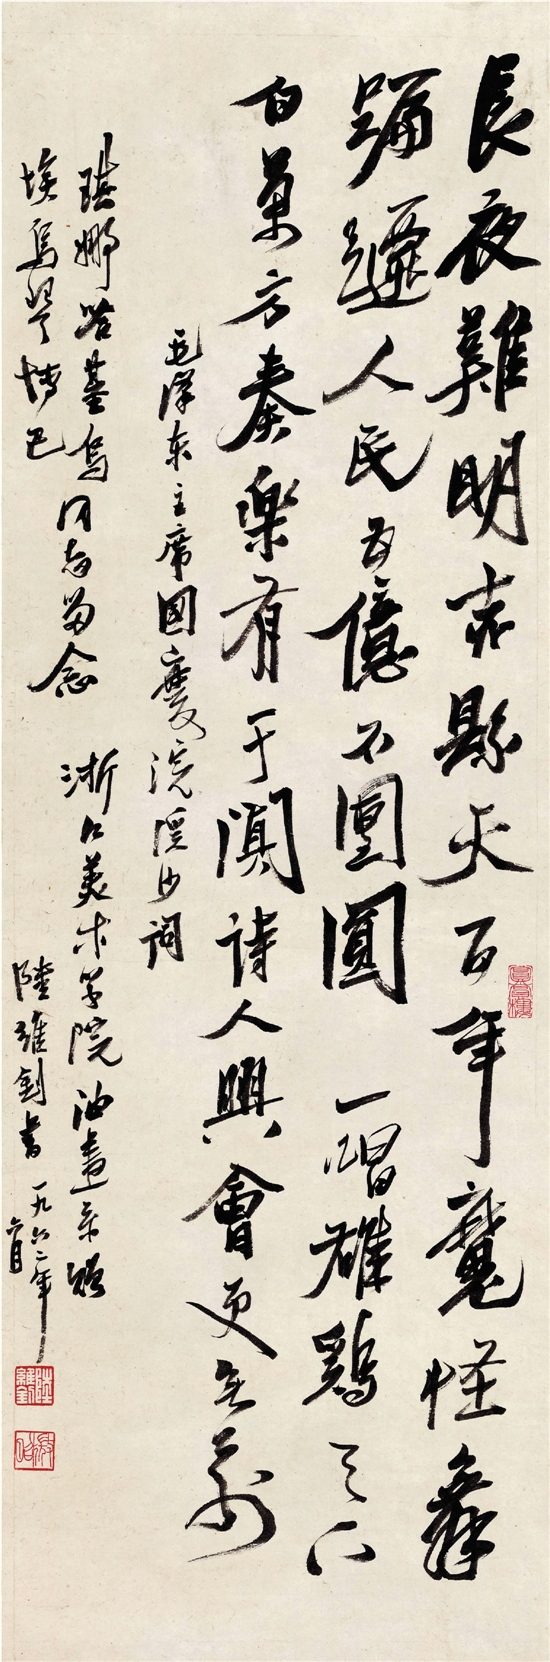 長夜難明赤縣天百年魔怪舞
蹁躚人民五億不團圓 一唱雄鷄天下
白萬方奏樂有于闐詩人興會更無前
毛澤东主席國慶浣溪沙詞
琪娜 基烏同志留念 浙江美术学院油畫系贈
埃烏琴 博巴
陸維釗書 一九六二年
六月
陸維釗